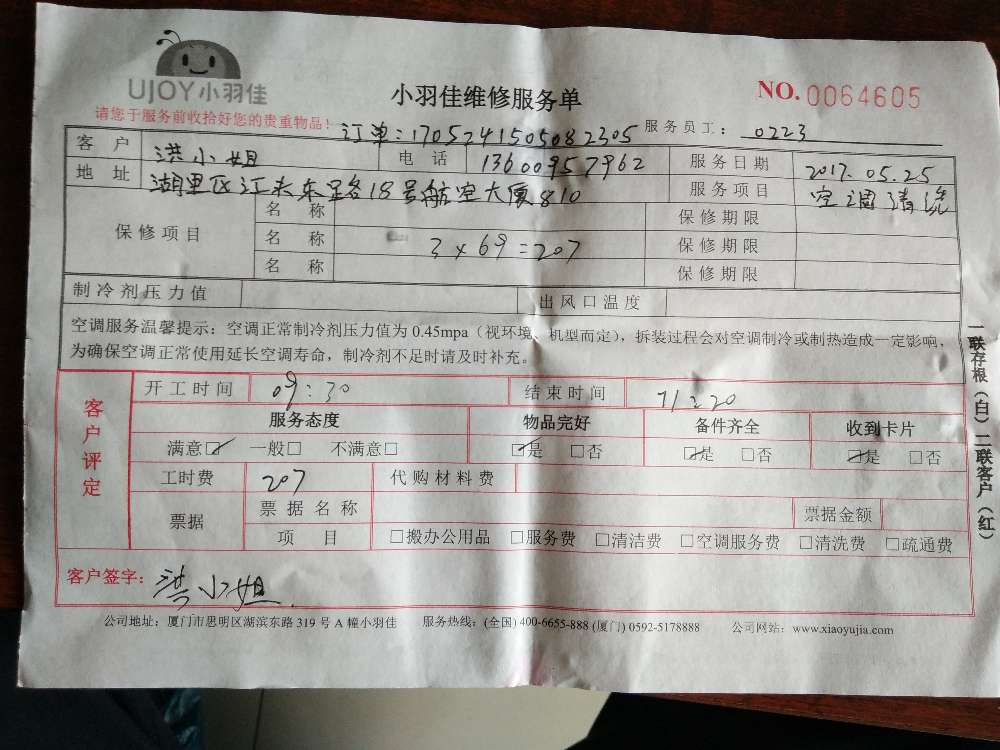 UJOY小羽佳
小羽佳维修服务单
NO. 0064605
请您于服务前收拾好您的贵重物品!
订单:1705241505082305
服务员工: 0223
客户 洪小姐 电话 13600957962 服务日期 2017.05.25
地址 湖里区江头东路18号航空大厦810 服务项目 空调清洗
保修项目 名称 保修期限
名称 3×69=207 保修期限
名称 保修期限
制冷剂压力值 出风口温度
空调服务温馨提示:空调正常制冷剂压力值为 0.45mpa(视环境、机型而定),拆装过程会对空调制冷或制热造成一定影响,
为确保空调正常使用延长空调寿命,制冷剂不足时请及时补充。
客户评定
开工时间 09:30 结束时间 11:20
服务态度 物品完好 备件齐全 收到卡片
满意☑ 一般□ 不满意□ ☑是 □否 ☑是 □否 ☑是 □否
工时费 207 代购材料费
票据 票据名称 票据金额
项目 □搬办公用品 □服务费 □清洁费 □空调服务费 □清洗费 □疏通费
客户签字: 洪小姐
一联存根(白)二联客户(红)
公司地址:厦门市思明区湖滨东路 319 号 A 幢小羽佳 服务热线:(全国) 400-6655-888 (厦门) 0592-5178888 公司网站:www.xiaoyujia.com